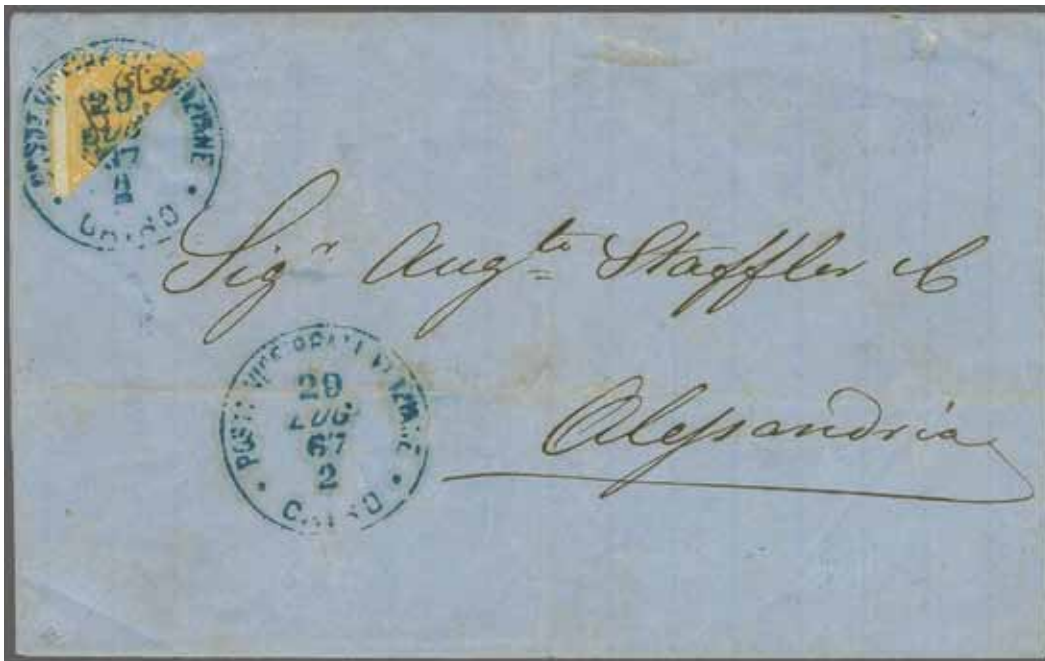 POSTE VICE REALI EGIZIANE
29
LUG
67
CAIRO
Sigr Augto Staffler & C
POSTE VICE REALI EGIZIANE
29
LUG
67
2
CAIRO
Alessandria